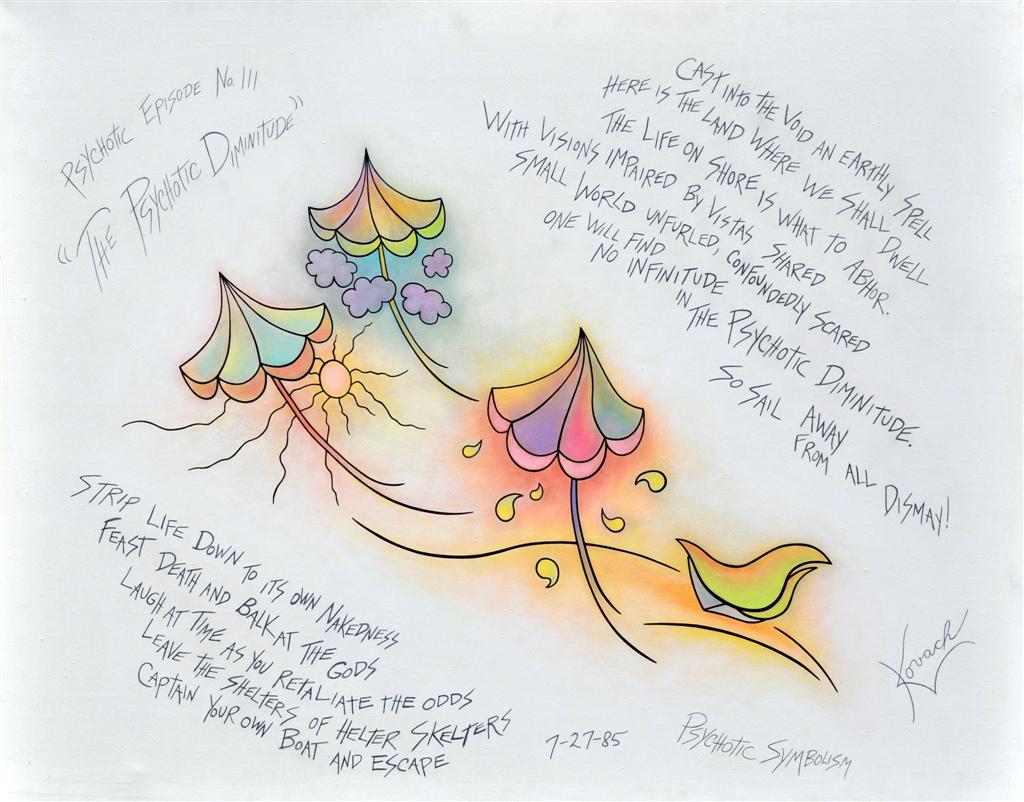 PSYCHOTIC EPISODE No. III
"THE PSYCHOTIC DIMINITUDE"
CAST INTO THE VOID AN EARTHLY SPELL
HERE IS THE LAND WHERE WE SHALL DWELL
THE LIFE ON SHORE IS WHAT TO ABHOR.
WITH VISIONS IMPAIRED BY VISTAS SHARED
SMALL WORLD UNFURLED, CONFOUNDEDLY SCARED
ONE WILL FIND
NO INFINITUDE
IN
THE PSYCHOTIC DIMINITUDE.
SO SAIL AWAY
FROM ALL DISMAY!
STRIP LIFE DOWN TO ITS OWN NAKEDNESS
FEAST DEATH AND BALK AT THE GODS
LAUGH AT TIME AS YOU RETALIATE THE ODDS
LEAVE THE SHELTERS OF HELTER SKELTERS
CAPTAIN YOUR OWN BOAT AND ESCAPE
7-27-85
PSYCHOTIC SYMBOLISM
Kovach